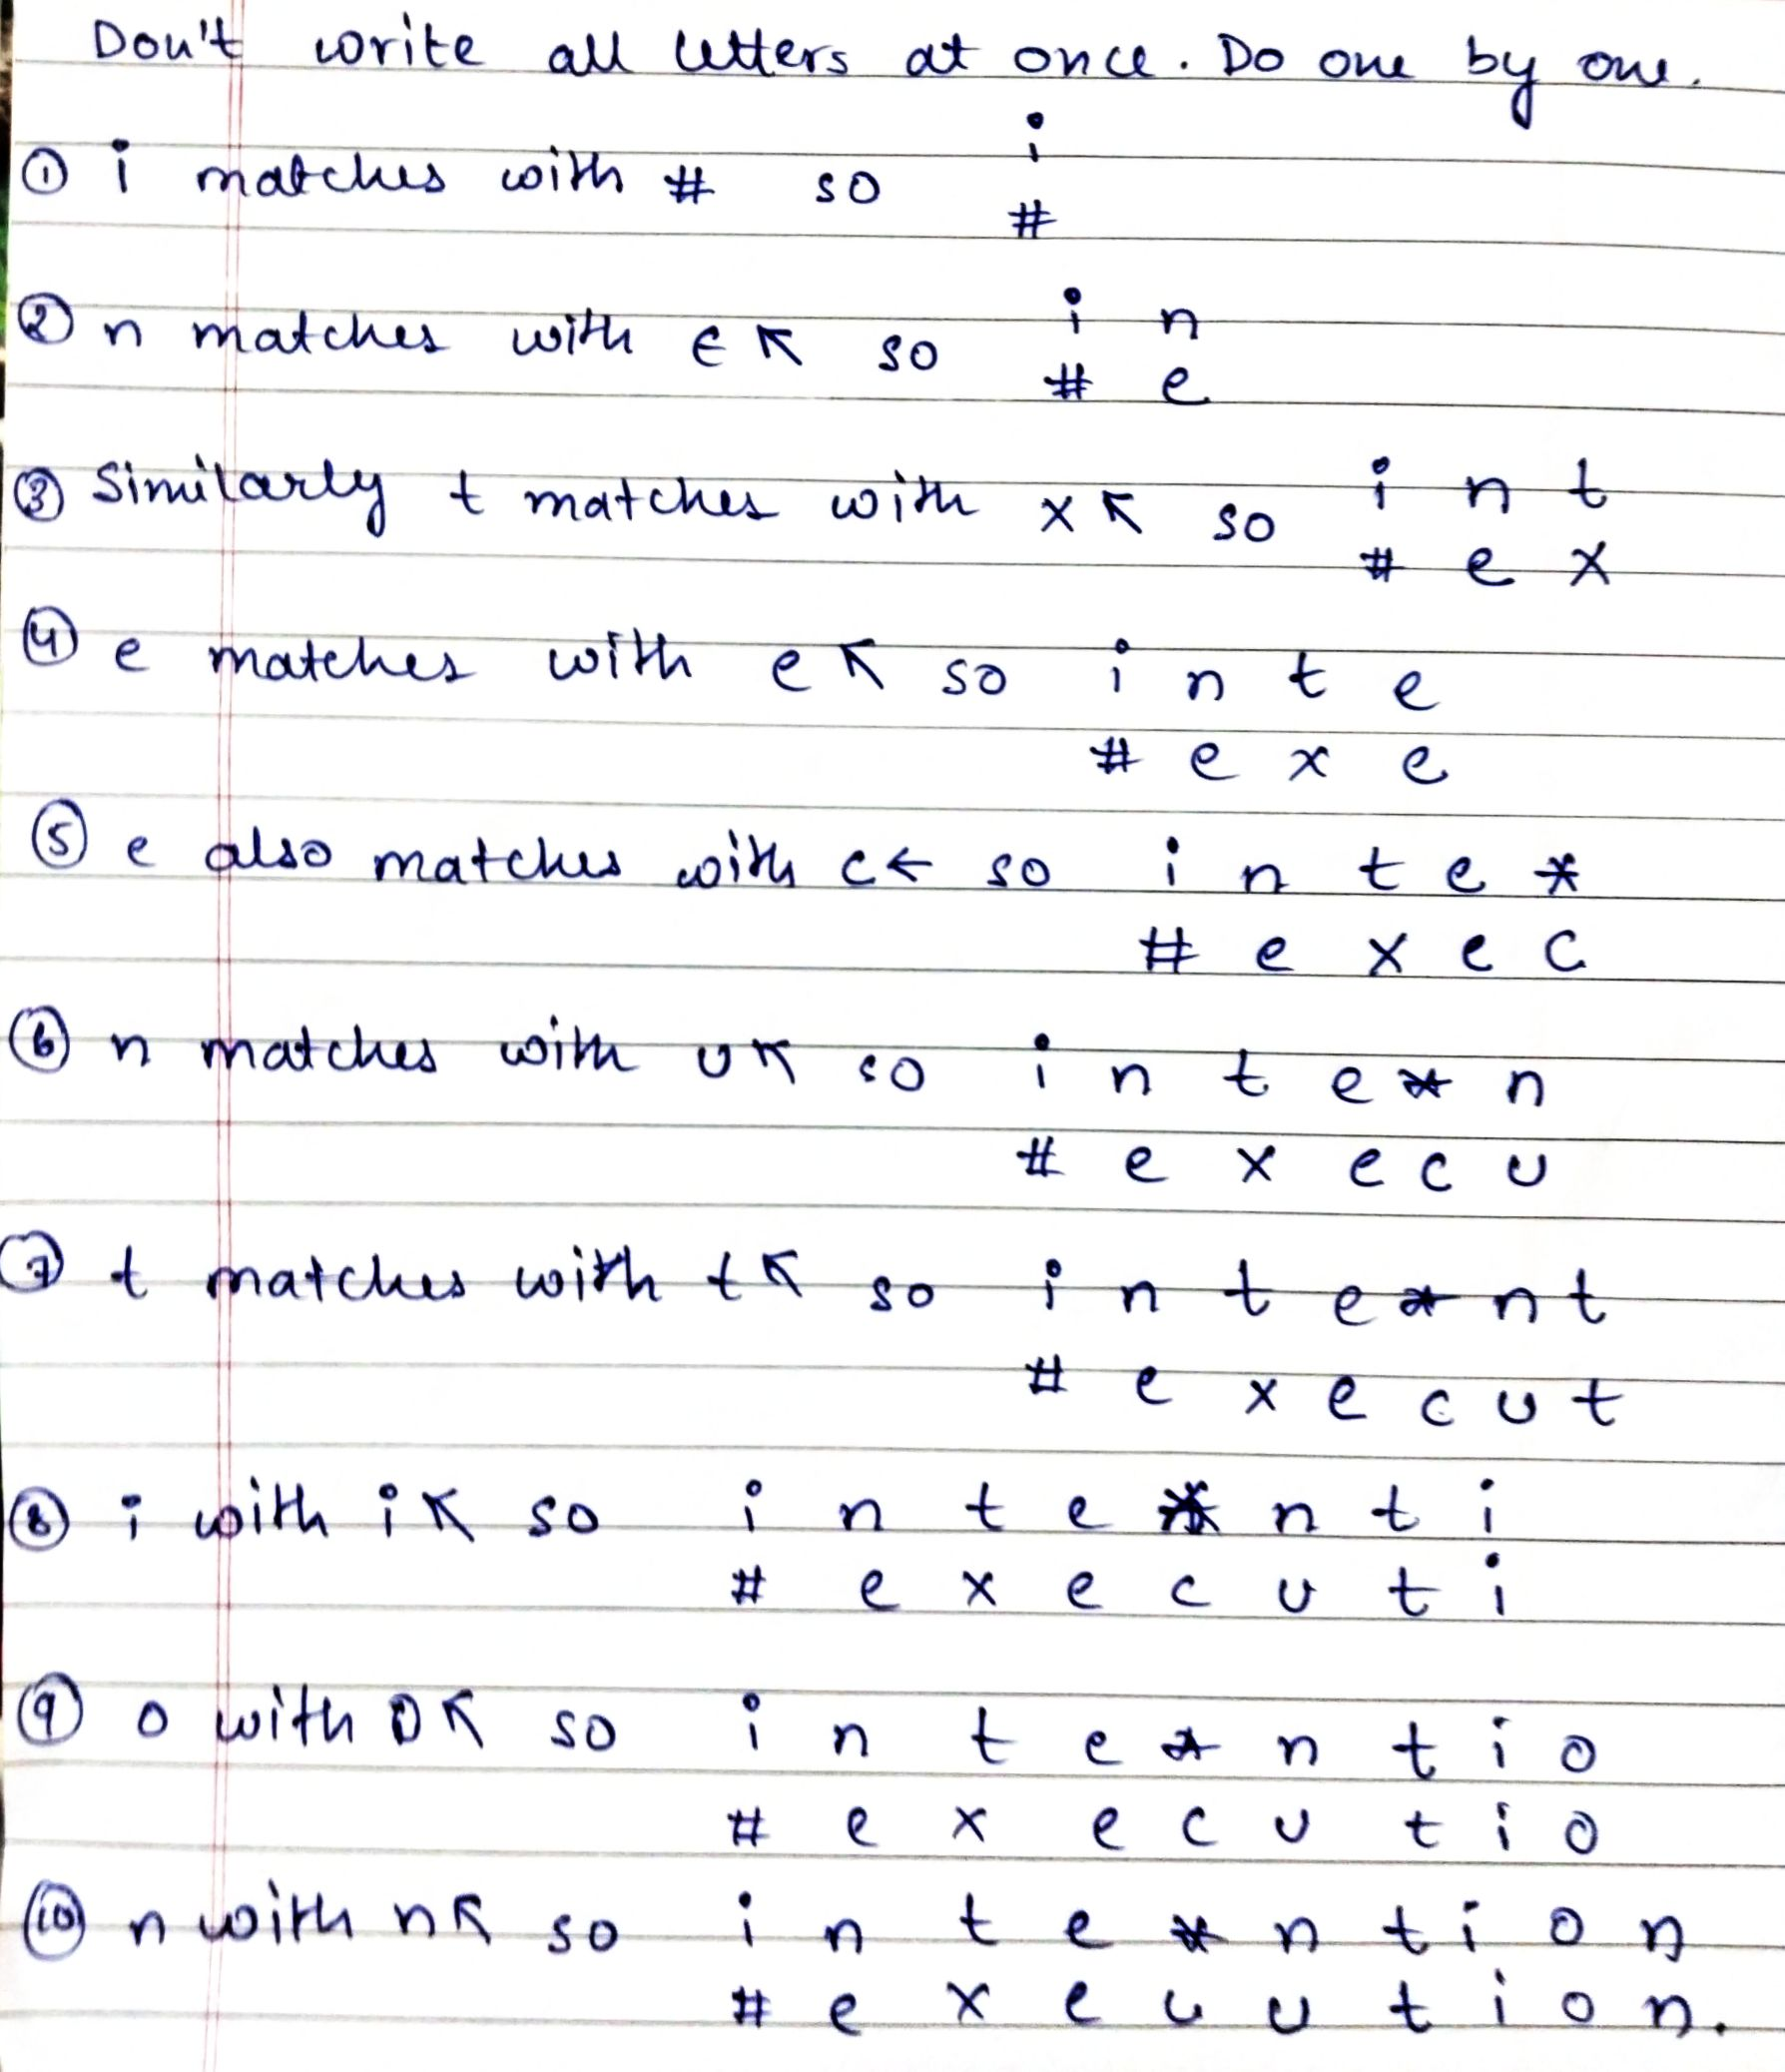 Don't write all letters at once. Do one by one.
① i matches with # so i
#
② n matches with e ↖ so i n
# e
③ Similarly t matches with x ↖ so i n t
# e x
④ e matches with e ↖ so i n t e
# e x e
⑤ e also matches with c ← so i n t e *
# e x e c
⑥ n matches with u ↖ so i n t e * n
# e x e c u
⑦ t matches with t ↖ so i n t e * n t
# e x e c u t
⑧ i with i ↖ so i n t e * n t i
# e x e c u t i
⑨ o with o ↖ so i n t e * n t i o
# e x e c u t i o
⑩ n with n ↖ so i n t e * n t i o n
# e x e c u t i o n.